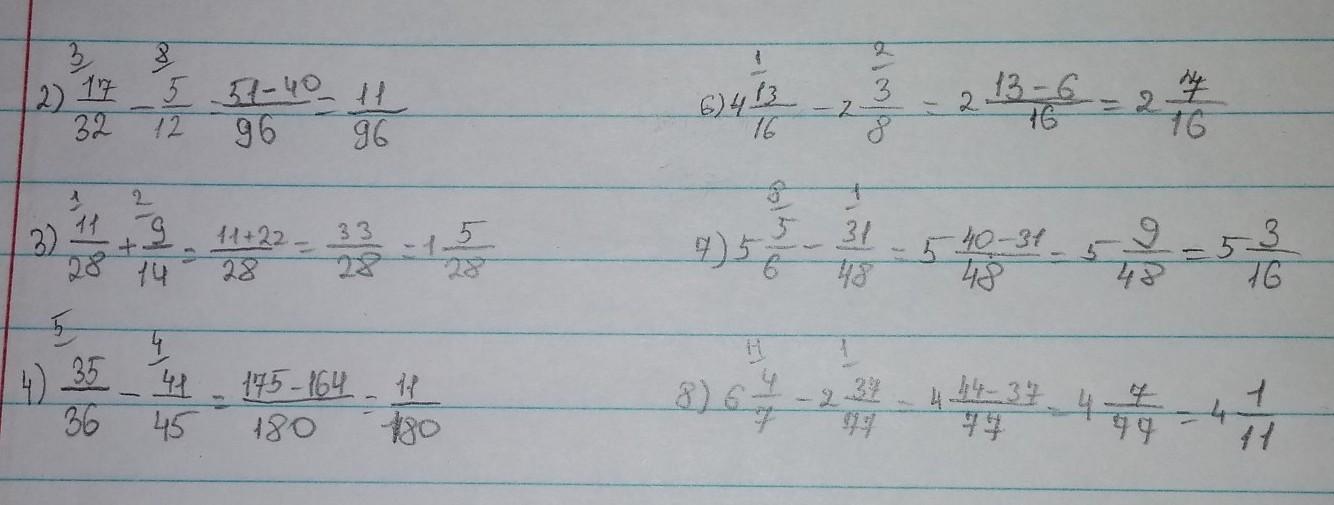 2) 3/ 17/32 - 8/ 5/12 (51-40)/96 = 11/96
3) 1/ 11/28 + 2/ 9/14 = (11+22)/28 = 33/28 = 1 5/28
4) 5/ 35/36 - 4/ 41/45 = (175-164)/180 = 11/180
6) 1/ 4 13/16 - 2/ 2 3/8 = 2 (13-6)/16 = 2 7/16
7) 8/ 5 5/6 - 1/ 31/48 = 5 (40-31)/48 = 5 9/48 = 5 3/16
8) 11/ 6 4/7 - 1/ 2 37/77 = 4 (44-37)/77 = 4 7/77 = 4 1/11